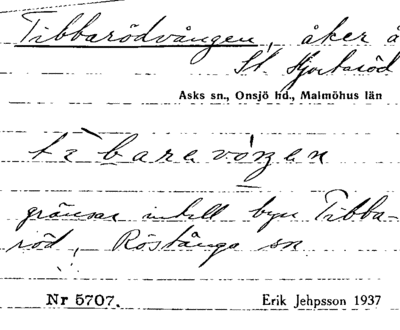 Tibbarödvången, åker å
St. Hjortaröd
Asks sn., Onsjö hd., Malmöhus län
tìbarevóŋen
gränsar intill byn Tibba-
röd, Röstånga sn
Nr 5707. Erik Jehpsson 1937